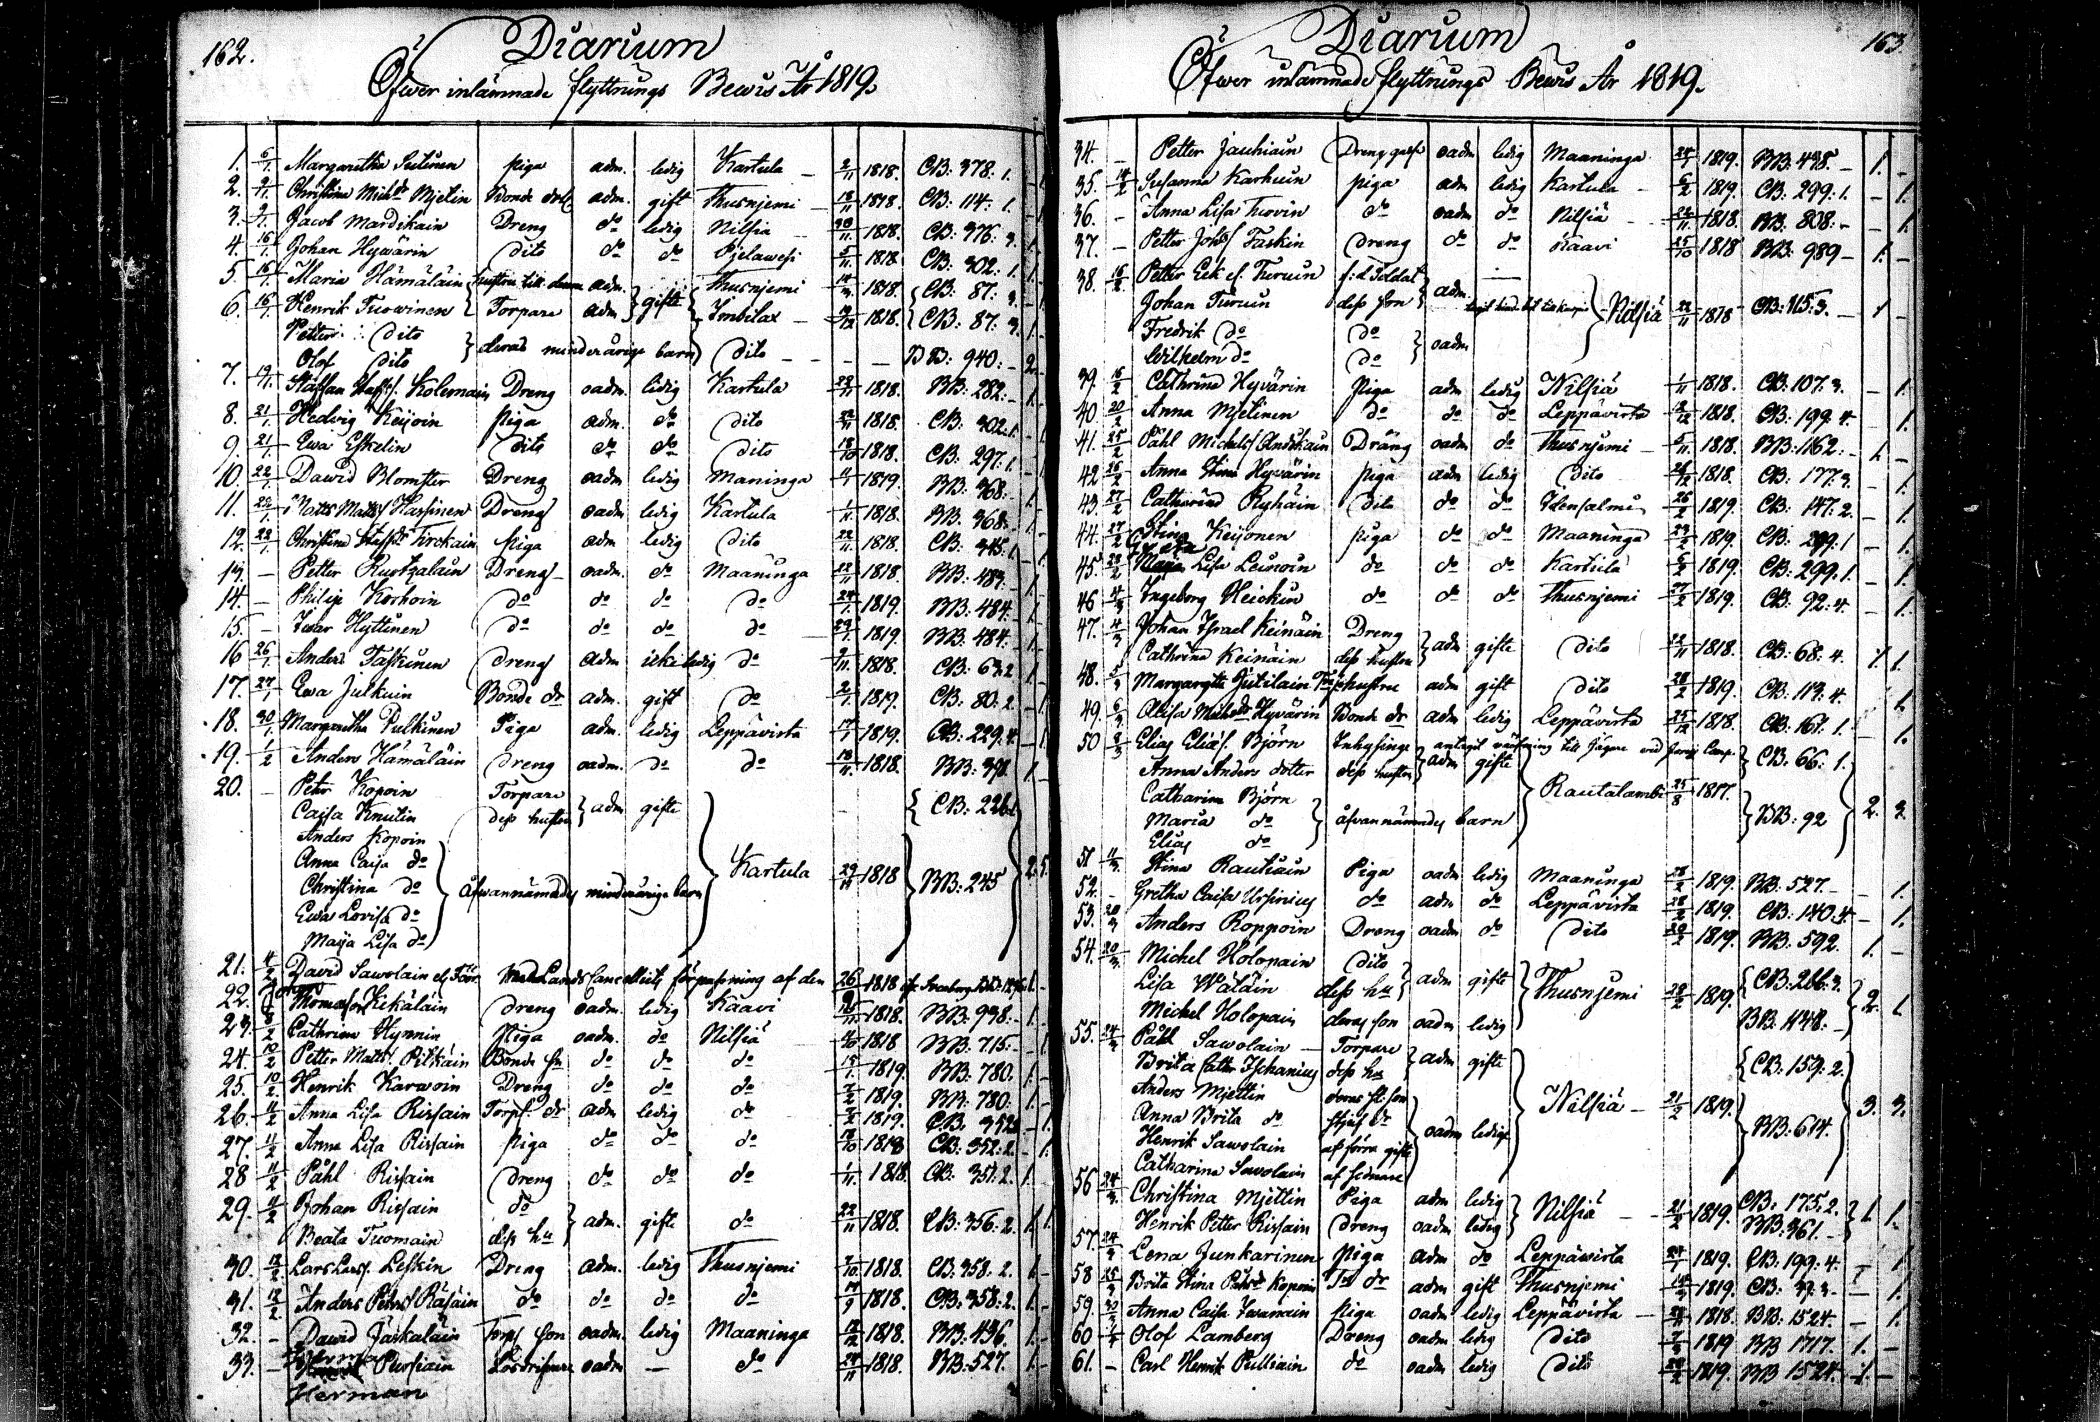 162.
Diarium
Öfwer inlämnade flyttnings Bewis År 1819.
1. 6/1. Margaretha Sutinen piga adm. ledig Kartula 2/11 1818. CB: 378. 1.
2. Christina Michsdr Mjelin Bonde adm. gift Thusnjemi 18/11 1818. CB: 114: 1.
3. Jacob Mardikain Dreng do ledig Nilsia 30/11 1818. CB: 376. 3. 1.
4. 16/1. Johan Hywärin dito do do Pjelawesi 5/11 1818. CB: 302: 1. 1.
5. 16/1 Maria Hämäläin hustru till denna adm. Thusnjemi 1818. CB: 87: 3.
6. 16/1 Henrik Tuowinen Torpare adm gifte Imbilax 1818. CB: 87: 3. 1.
Petter dito deras minderårige barn dito BB: 940: 2.
Olof dito
7. 19/1. Staffan Staffs. Kolemain Dreng oadm. ledig Kartula 22/11 1818. BB: 282. 1.
8. 21/1. Hedvig Keijoin piga adm. do dito 22/11 1818. CB: 302. 1.
9. 21/1. Ewa Eskelin dito do do dito 18/10 1818. CB: 297. 1.
10. 22/1. Dawid Blomster Dreng oadm ledig Maninga 1819. BB: 368.
11. 22/1. Matts Matts. Hassinen Dreng oadm ledig Kartula 1/11 1818. BB. 368. 1.
12. 22/1. Christina Staffsdr Tirckain piga adm ledig dito 22/11 1818. CB: 345. 1
13. — Petter Rustzalain Dreng oadm. do Maaninga 22/11 1818. BB: 483. 1.
14. — Philip Korhoin do do do do 24/1. 1819. BB: 484. 1.
15. — Iwar Hyttinen do do do do 29/1 1819. BB: 484. 1.
16 26/1. Anders Taskinen Dreng adm icke ledig do 9/11. 1818. CB: 63. 2
17. 27/1 Ewa Julkuin Bonde dr adm. gift do 2/1. 1819. CB: 80: 2. 1
18. 30/1. Margaretha Pulkinen Piga adm. ledig Leppävirta 17/1 1819. CB: 229. 4. 1.
19. 1/2 Anders Hämäläin Dreng oadm. do do 18/11. 1818. BB: 391. 1.
20. — Petter Kopoin Torpare adm gifte CB: 226.
Caisa Knutin dess hustru
Anders Kopoin
Anna Caisa do
Christina do åfwannämdes minderårige barn Kartula 29/11 1818 BB: 245 2. 5.
Ewa Lovisa do
Maija Lisa do
21. 4/2 David Sawolain el. Förs. Med Lands Cancelliets förpassning af den 26/9 1818 1.
22. Thomas Kikäläin Dreng oadm. ledig Kaavi 15/11 1818. BB: 998. 1.
23. 8/2 Cathrina Hynnin Piga oadm. do Nilsiä 1818 BB: 715. 1.
24. 10/2 Petter Matts. Pitkäin Bonde sn do do do 15/1. 1819. BB: 780. 1.
25. 10/2 Henrik Karwoin Dreng do do do 7/2 1819. BB: 780. 1.
26. 11/2 Anna Lisa Rissain Torps. dr adm ledig do 7/2 1819. CB. 352. 1.
27. 11/2 Anna Lisa Rissain piga do do do 18/10 1818 CB: 352. 2. 1.
28 11/2 Påhl Rissain Dreng do do do 1/11. 1818. CB. 351. 2. 1.
29. 11/2 Johan Rissain do adm. gifte do 22/11 1818. CB: 356. 2. 1. 1.
Beata Tuomain dess hu
30. 12/2 Lars Lars. Leskin Dreng adm. ledig Thusnjemi 7/10 1818. CB. 358. 2. 1.
31. 12/2 Anders Petters. Räsäin do do do do 14/9 1818. CB: 358. 2. 1.
32. — David Jäskäläin Torps son oadm. ledig Maaninga 12/12 1818. BB: 436. 1.
33. — Herman Pursiain Lösdrifvare oadm — do 24/11 1818. BB: 527. 1.
Herman
163.
Diarium
Öfwer inlämnade flyttnings Bewis År 1819.
34. — Petter Jauhiain Dreng gosse oadm ledig Maaninga 24/1 1819. BB: 438. 1.
35. 14/2 Susanna Karhuin piga adm ledig Kartula 6/2 1819. CB. 299: 1. 1.
36. — Anna Lisa Tuovin do oadm do Nilsiä 22/11 1818. BB. 808: 1.
37. — Petter Johs. Taskin Dreng do do Kaavi 25/10 1818 BB: 989 1.
38. 16/2 Petter Eek el. Turuin f:d Soldat adm. Nilsiä 22/11 1818 CB: 115. 3. 1
Johan Turuin dess son
Fredrik do do oadm
Wilhelm do do
39. 16/2 Cathrina Hyvärin Piga adm ledig Nilsiä 1/11 1818. CB. 107. 3. 1.
40. 20/2 Anna Mjetinen do do do Leppävirta 12/12 1818. CB. 199. 4. 1.
41. 25/2 Påhl Michels. Dräng oadm do Thusnjemi 6/11. 1818. BB: 1162. 1.
42 26/2 Anna Stina Hyvärin piga adm ledig dito 26/12 1818. CB. 177. 3. 1.
43. 27/2 Catharina Ryhäin dito do do Idensalmi 26/2 1819. CB. 147. 2. 1.
44. 27/2 Stina Keijonen piga do do Maaninga 23/2 1819. CB. 299. 1 1.
45. 28/2 Lisa Leinoin do do do Kartula 6/2 1819. CB: 299. 1. 1.
46 4/3 Ingeborg Heickin do do do Thusnjemi 27/2 1819. CB. 92. 4. 1.
47. 4/3 Johan Israel Keinäin Dreng adm gifte dito 22/11 1818. CB. 68. 4. 1. 1.
Cathrina Keinäin dess hustru
48. 5/3 Margaretha Jutilain hustru adm gift dito 28/2 1819. CB. 113. 4. 1.
49. 6/3 Alisa Michelsdr Hyvärin Bonde dr adm ledig Leppävirta 25/12 1818. CB: 161. 1. 1.
50 8/3 Elias Elias. Björn Inhysinge antagit värfning till Jägare vid
Anna Anders dotter dess hustru adm gifte CB: 66: 1.
Catharina Björn Rautalambi 25/8 1817. BB: 92 2. 2
Maria do åfvannämndes barn
Elias do
51 11/3 Stina Rautiain Piga oadm ledig Maaninga 28/2 1819. BB. 527. 1.
52. — Gretha Caisa Ursinius do adm do Leppävirta 28/2 1819. CB: 140. 4. 1.
53. 20/3 Anders Roppoin Dreng oadm do dito 20/2 1819. BB. 592. 1.
54. 20/3. Michel Holopain dito adm gifte Thusnjemi 28/2 1819. CB: 266. 3. 2. 1.
Lisa Wätäin dess hu
Michel Holopain deras son oadm ledig BB. 1148.
55. 24/3 Påhl Sawolain Torpare adm gifte CB: 159. 2.
Brita Cathr. Ischanius dess hu
Anders Mjettin deras st. son Nilsiä 21/2 1819. BB: 614. 3. 3.
Anna Brita do stjuf dr oadm ledige
Henrik Sawolain af förra gifte
Catharina Sawolain af sednare
56 24/3. Christina Mjettin Piga adm ledig Nilsiä 21/2 1819. CB: 175. 2. 1. 1.
Henrik Petter Rissain Dreng oadm ledig BB: 361.
57. 24/3 Lena Junkarinen piga adm do Leppävirta 24/1 1819. CB. 199. 4. 1.
58 25/3 Brita Stina Påhlsdr Kopoin Tor dr adm gift Thusnjemi 14/3 1819. CB. 39. 3. 1.
59. Anna Caisa piga oadm ledig Leppävirta 1818. BB. 1524. 1.
60 Olof Lamberg Dreng oadm ledig dito 7/3 1819 BB 1717. 1.
61. — Carl Henrik Pulliain do oadm ledig dito 28/2 1819. BB 1524. 1.